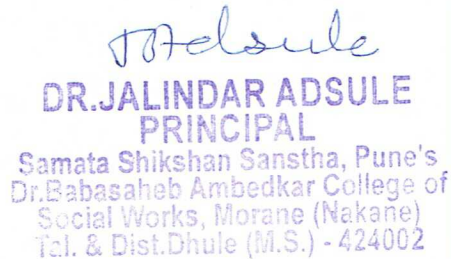 JAdsule
DR.JALINDAR ADSULE
PRINCIPAL
Samata Shikshan Sanstha, Pune's
Dr.Babasaheb Ambedkar College of
Social Works, Morane (Nakane)
Tal. & Dist.Dhule (M.S.) - 424002